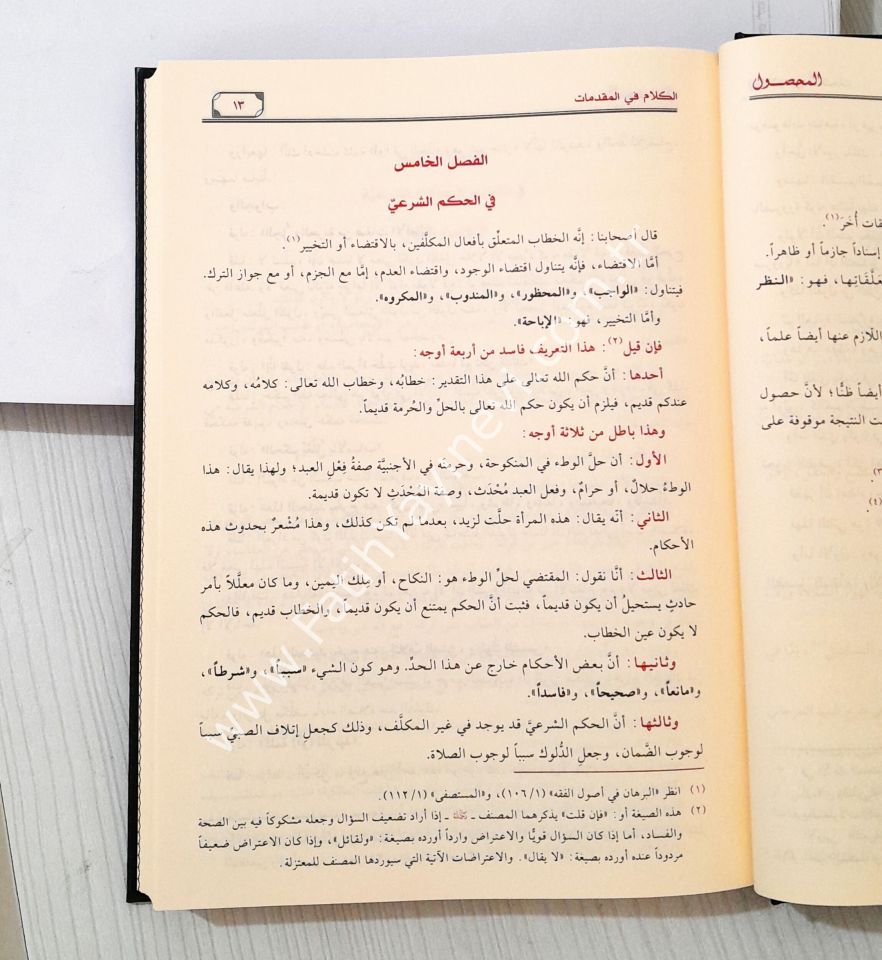 المحصول
قات أُخَرَ(١).
إسناداً جازماً أو ظاهراً.
علَّقَاتِها، فهو: «النظر
اللّازم عنها أيضاً علماً،
أيضاً ظنًّا؛ لأنَّ حصول
ت النتيجة موقوفة على
(٣)
(٤)
الكلام في المقدمات
١٣
الفصل الخامس
في الحكم الشرعيّ
قال أصحابنا: إنَّه الخطاب المتعلّق بأفعال المكلَّفين، بالاقتضاء أو التخيير(١).
أمَّا الاقتضاء، فإنَّه يتناول اقتضاء الوجود، واقتضاء العدم، إمَّا مع الجزم، أو مع جواز الترك.
فيتناول: «الواجب»، و«المحظور»، و«المندوب»، و«المكروه».
وأمَّا التخيير، فهو: «الإباحة».
فإن قيل(٢): هذا التعريف فاسد من أربعة أوجه:
أحدها: أنَّ حكم الله تعالى على هذا التقدير: خطابُه، وخطاب الله تعالى: كلامُه، وكلامه
عندكم قديم، فيلزم أن يكون حكم الله تعالى بالحلِّ والحُرمة قديماً.
وهذا باطل من ثلاثة أوجه:
الأول: أن حلَّ الوطء في المنكوحة، وحرمتَه في الأجنبيَّة صفةُ فِعْلِ العبد؛ ولهذا يقال: هذا
الوطءُ حلالٌ، أو حرامٌ، وفعل العبد مُحْدَث، وصفة المُحْدَثِ لا تكون قديمة.
الثاني: أنّه يقال: هذه المرأة حلَّت لزيد، بعدما لم تكن كذلك، وهذا مُشْعرٌ بحدوث هذه
الأحكام.
الثالث: أنَّا نقول: المقتضي لحلِّ الوطء هو: النكاح، أو مِلك اليمين، وما كان معلَّلاً بأمر
حادثٍ يستحيلُ أن يكون قديماً، فثبت أنَّ الحكم يمتنع أن يكون قديماً، والخطاب قديم، فالحكم
لا يكون عين الخطاب.
وثانيها: أنَّ بعض الأحكام خارج عن هذا الحدِّ. وهو كون الشيء «سبباً»، و«شرطاً»،
و«مانعاً»، و«صحيحاً»، و«فاسداً».
وثالثها: أنَّ الحكم الشرعيَّ قد يوجد في غير المكلَّف، وذلك كجعل إتلاف الصبيّ سبباً
لوجوب الضَّمان، وجعلِ الدُّلوك سبباً لوجوب الصلاة.
(١) انظر «البرهان في أصول الفقه» (١٠٦/١)، و«المستصفى» (١١٢/١).
(٢) هذه الصيغة أو: «فإن قلت» يذكرهما المصنف ـ ـ إذا أراد تضعيف السؤال وجعله مشكوكاً فيه بين الصحة
والفساد، أما إذا كان السؤال قويًّا والاعتراض وارداً أورده بصيغة: «ولقائل»، وإذا كان الاعتراض ضعيفاً
مردوداً عنده أورده بصيغة: «لا يقال». والاعتراضات الآتية التي سيوردها المصنف للمعتزلة.
www.FatihYayinevi.com.tr